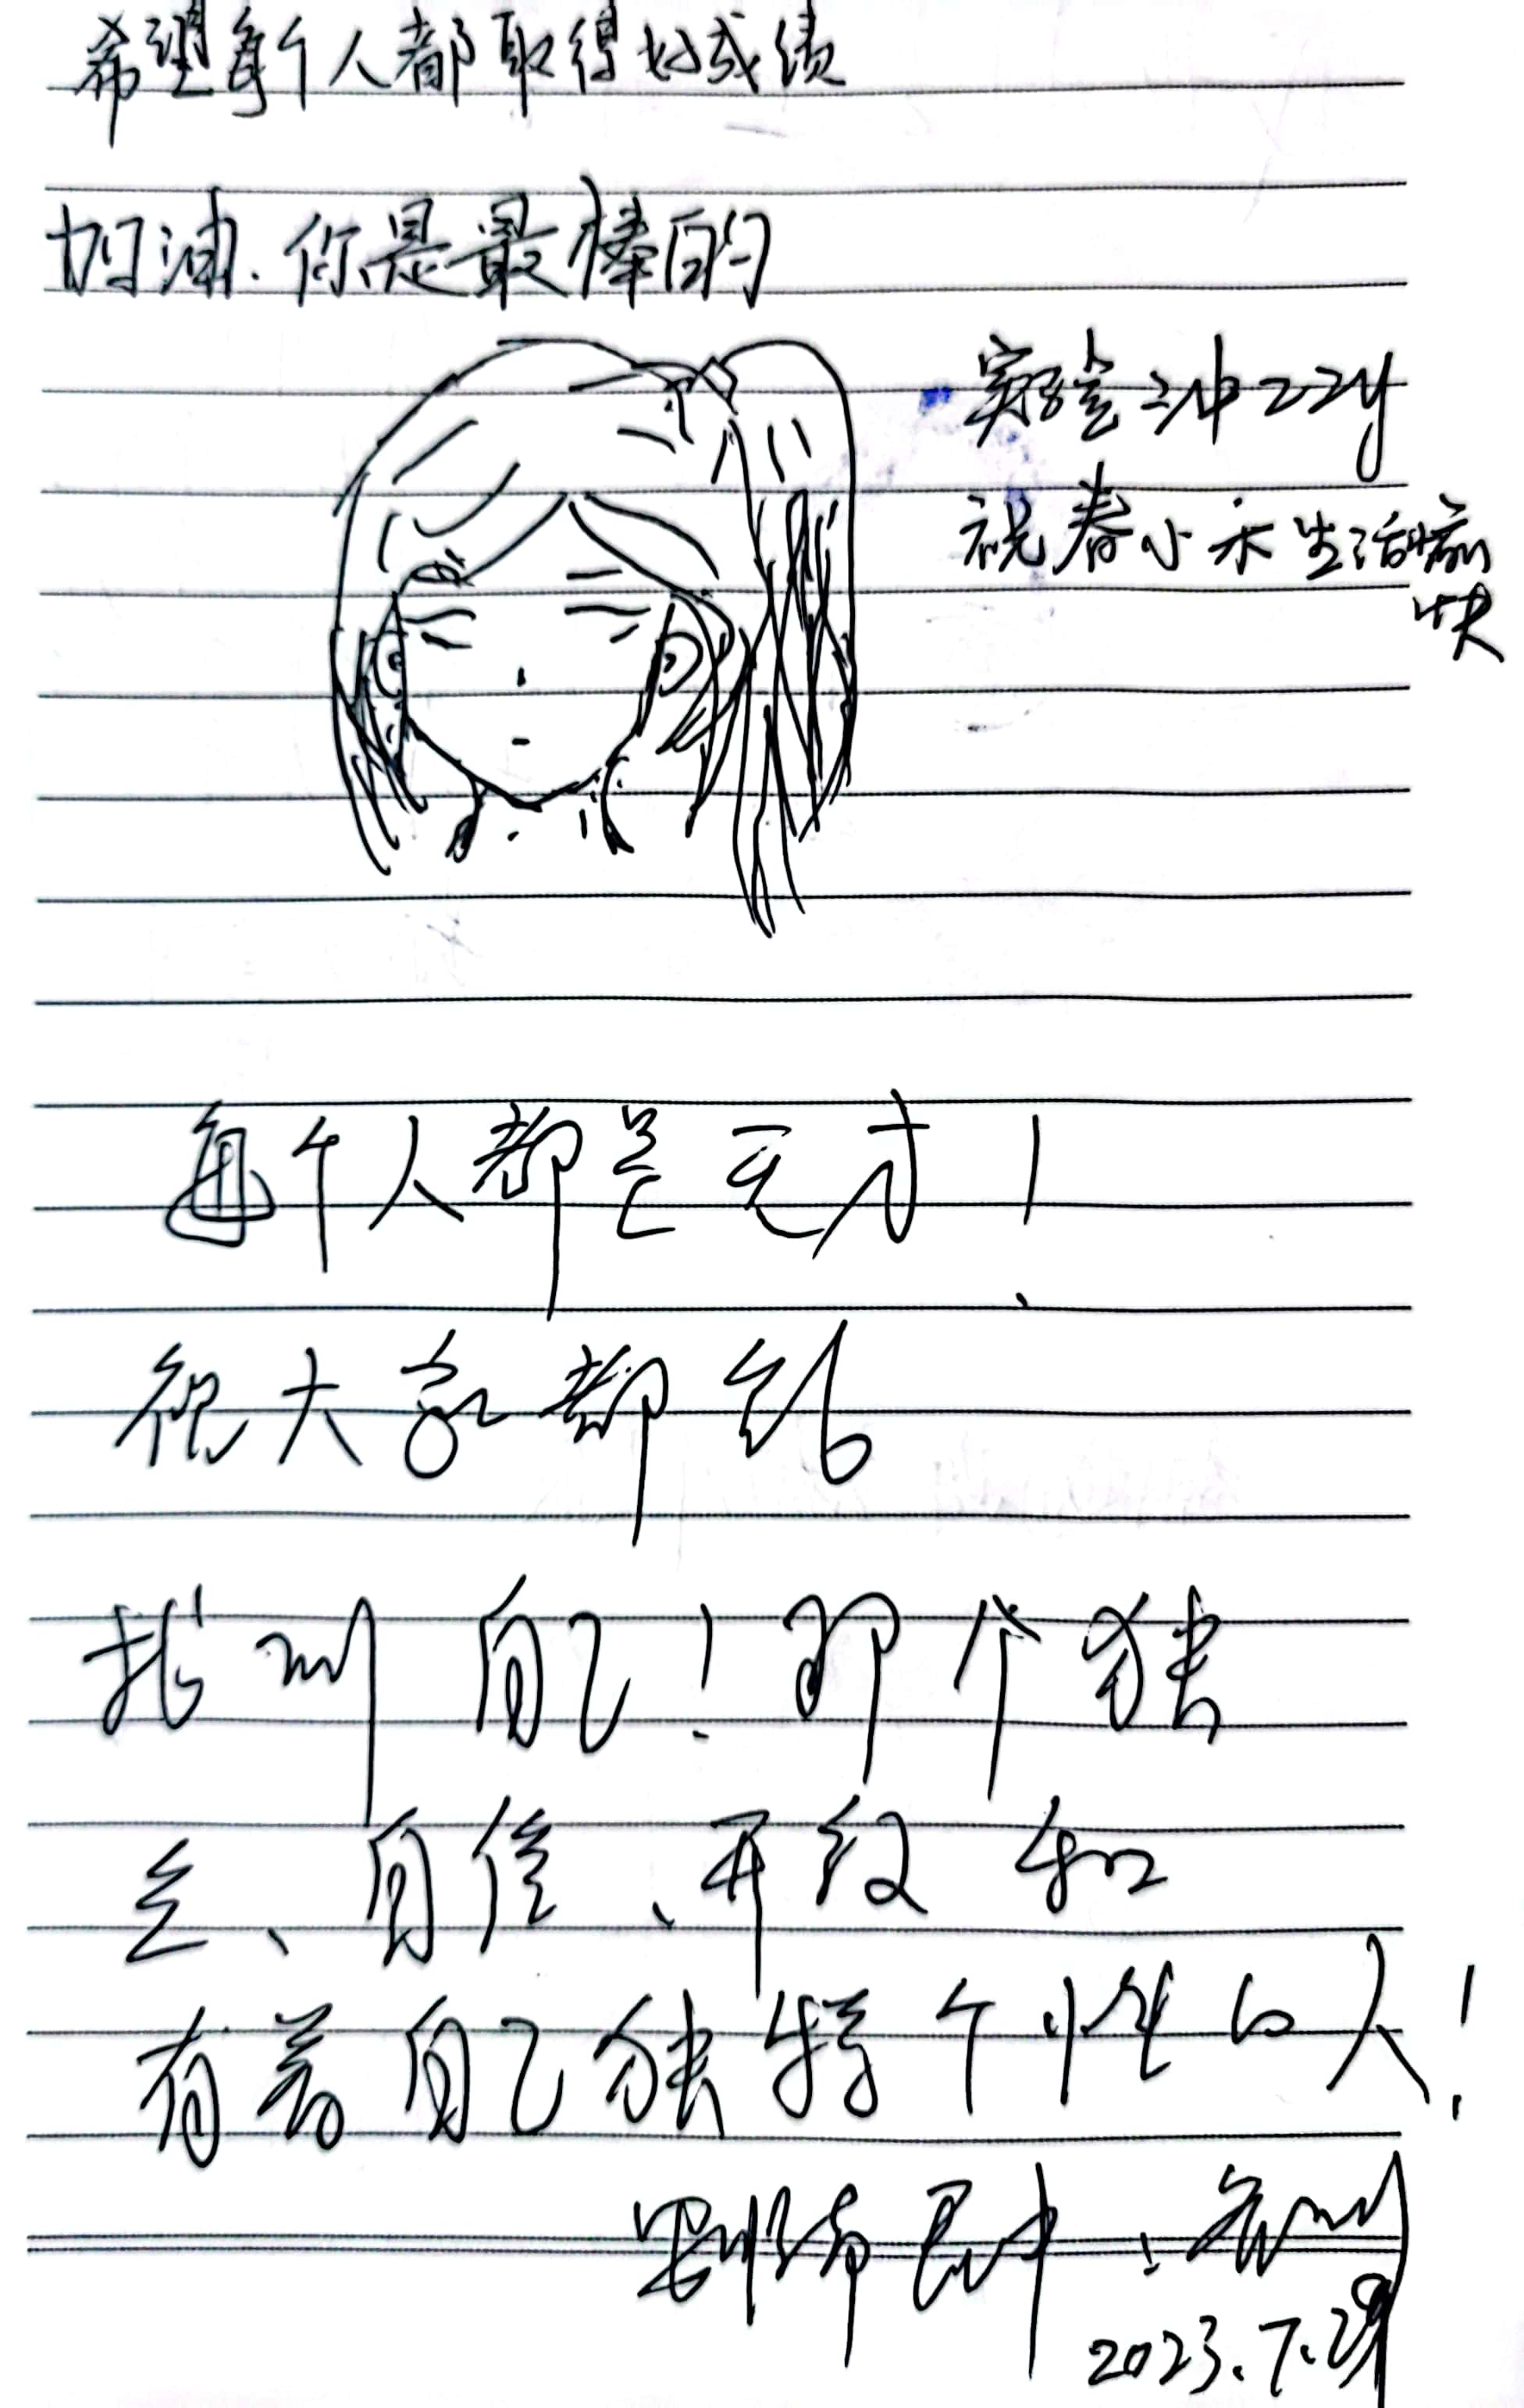 希望每个人都取得好成绩
加油.你是最棒的
实验三冲刺 zzy
祝春小禾生活愉
快
每个人都是天才!
很大家都能
找到自己!那个独
立、自信、开放和
有着自己独特个性的人!
2023.7.29